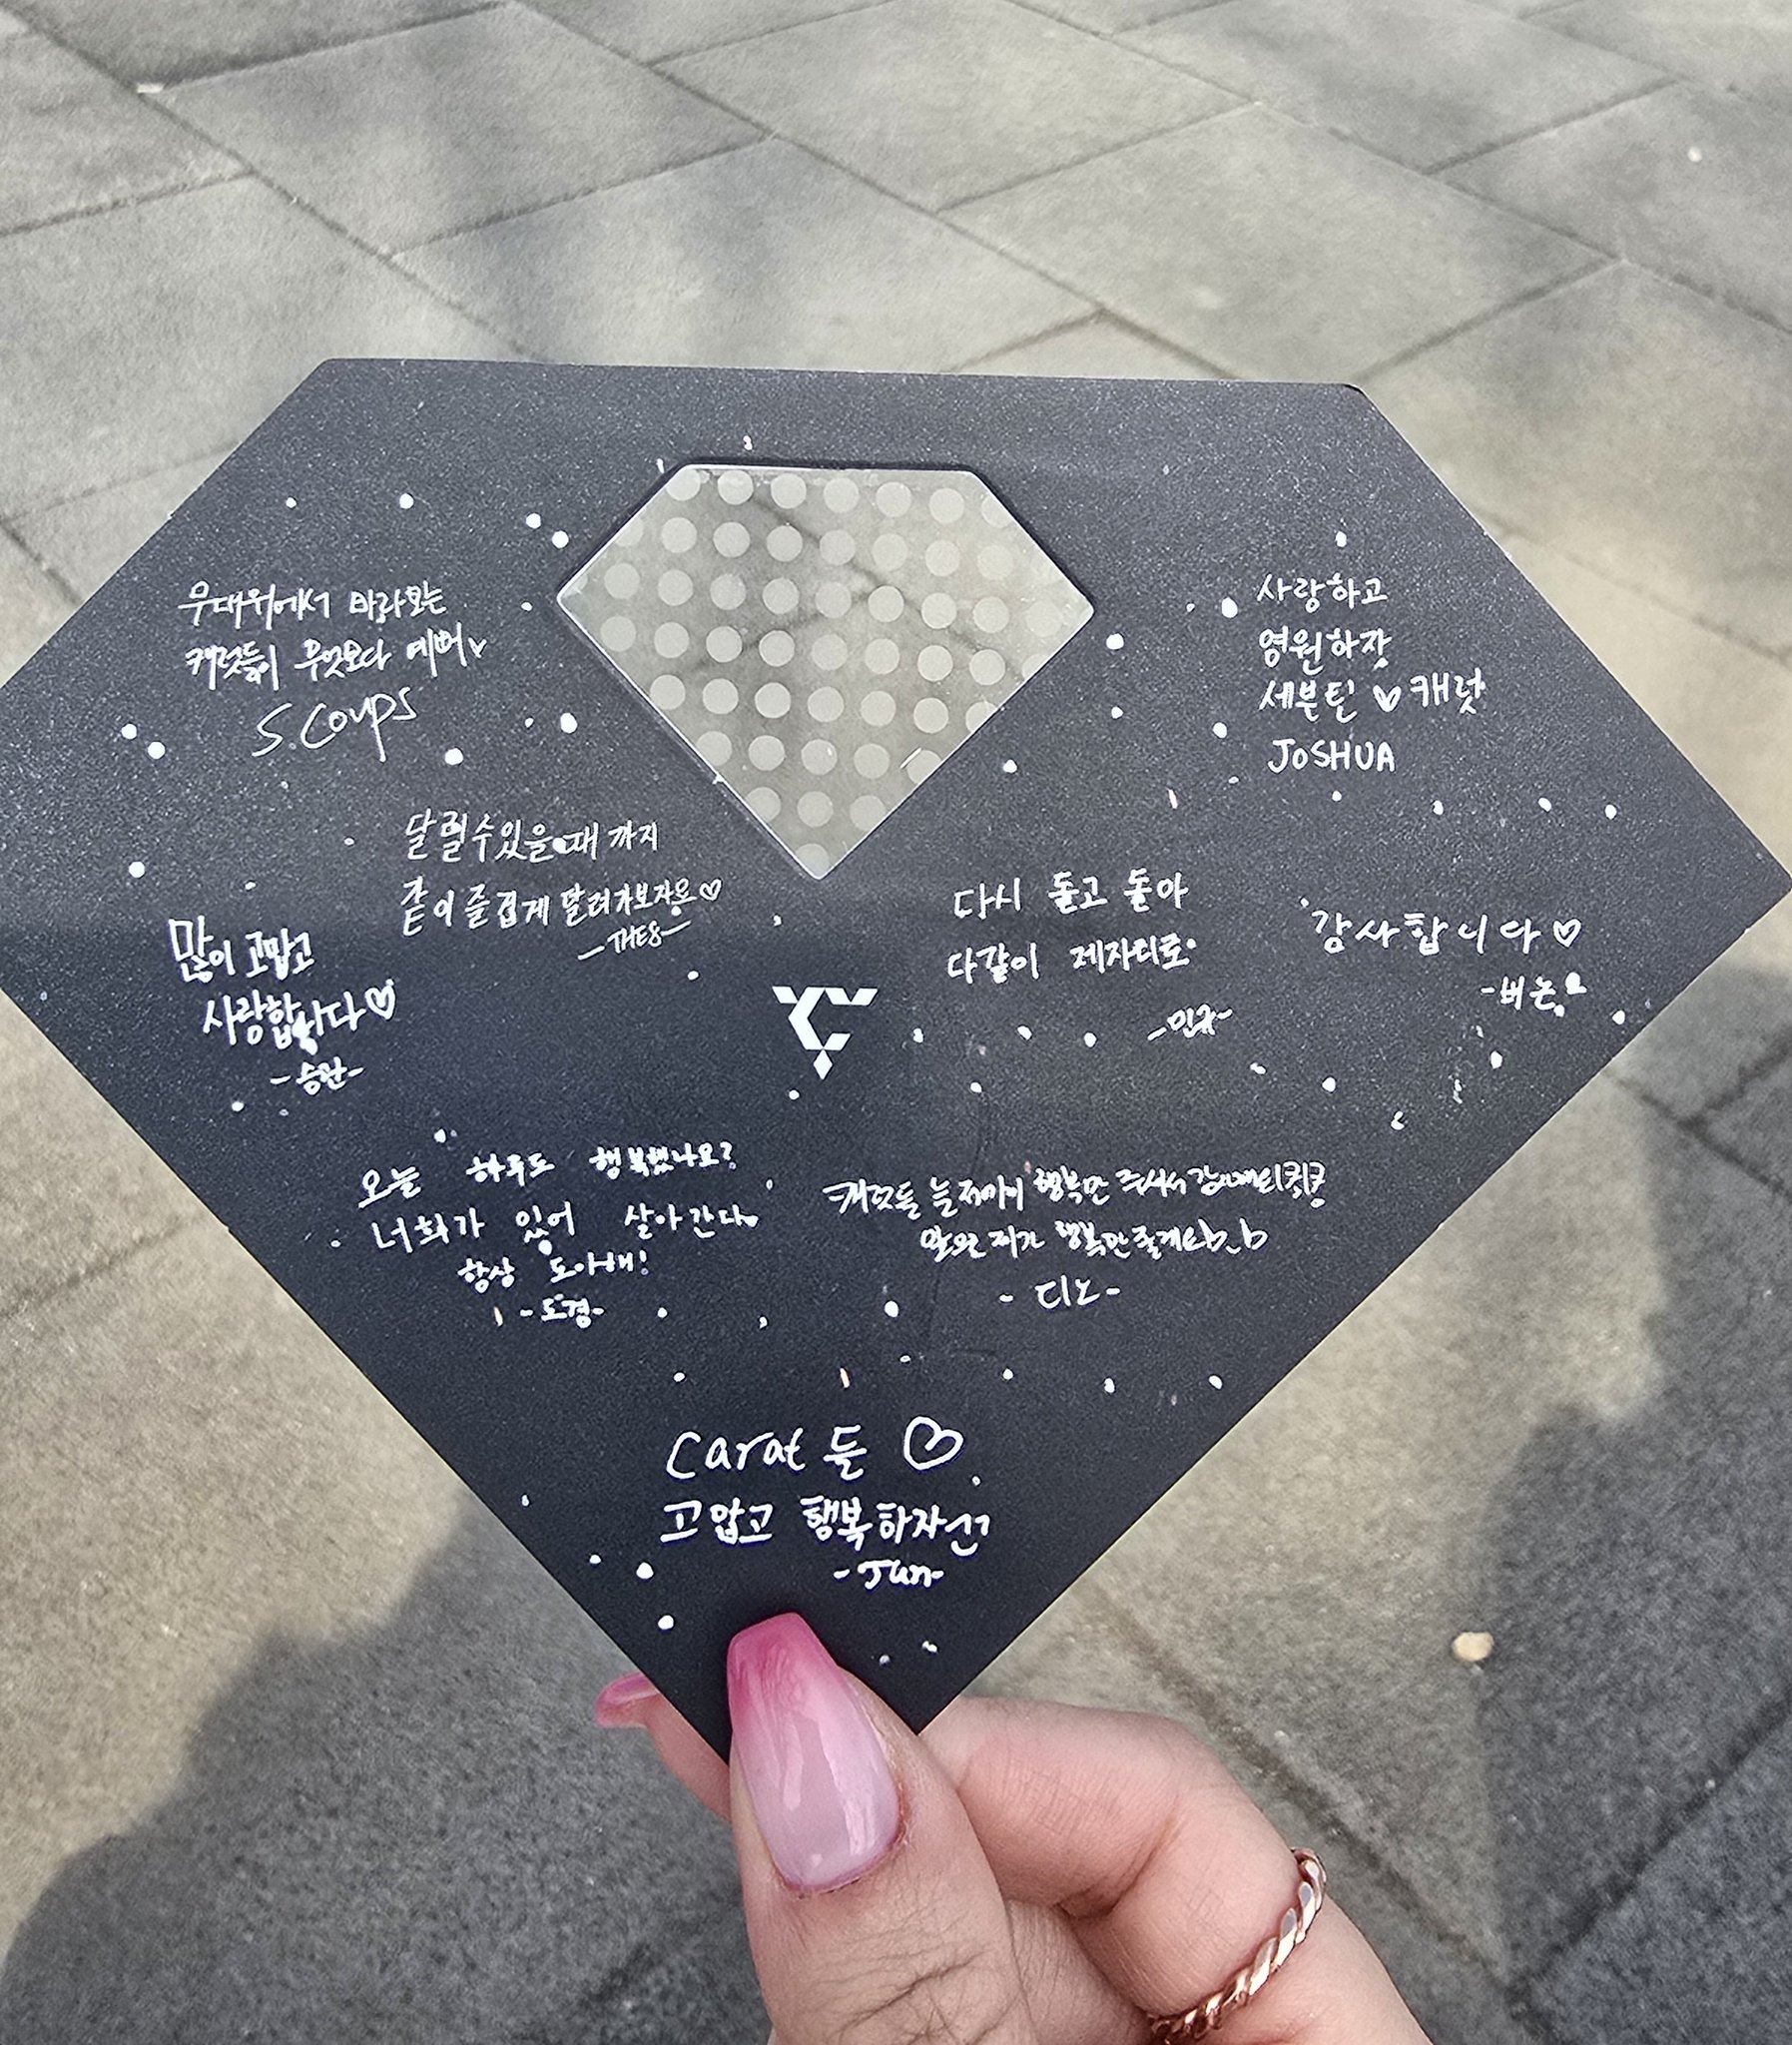 무대위에서 바라보는
캐럿들이 무엇보다 예뻐♡
S.Coups
사랑하고
영원하장
세븐틴 ♡ 캐럿
JOSHUA
달릴수있을때 까지
같이 즐겁게 달려가보자용♡
-THE8-
다시 돌고 돌아
다같이 제자리로
-민규-
감사합니다♡
-버논
많이 고맙고
사랑합니다♡
-승관-
오늘 하루도 행복했나요?
너희가 있어 살아간다
항상 도아해!
-도겸-
캐럿들 늘 저에게 행복만 주셔서
앞으로 제가 행복만 줄게요b_b
- 디노-
Carat 들 ♡
고맙고 행복하자
-Jun-